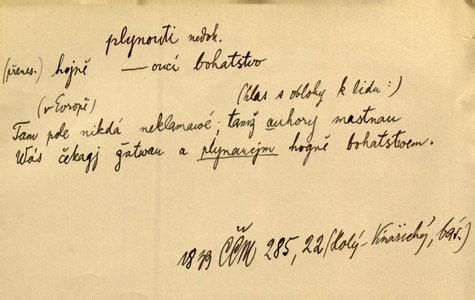 plynouti nedok.
(přenes.) hojně —oucí bohatstvo
(v Evropě) (hlas s oblohy k lidu:)
Tam pole nikdá neklamawé; tamž auhory mastnau
Wás čekagj žatwau a plynaucjm hogně bohatstwem.
1839 ČČM 285, 22 (Holý-Vinařický, bás.)